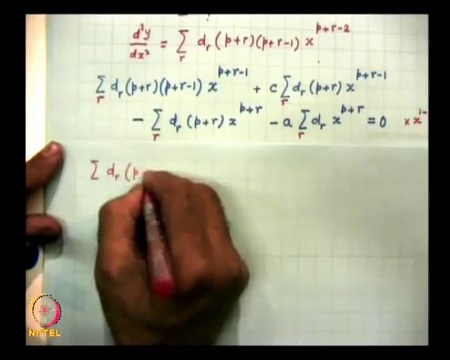 d²y/dx² = Σ_r d_r (p+r)(p+r-1) x^{p+r-2}
Σ_r d_r (p+r)(p+r-1) x^{p+r-1} + c Σ_r d_r (p+r) x^{p+r-1}
- Σ_r d_r (p+r) x^{p+r} - a Σ_r d_r x^{p+r} = 0 × x^{1-
Σ d_r (p
NPTEL